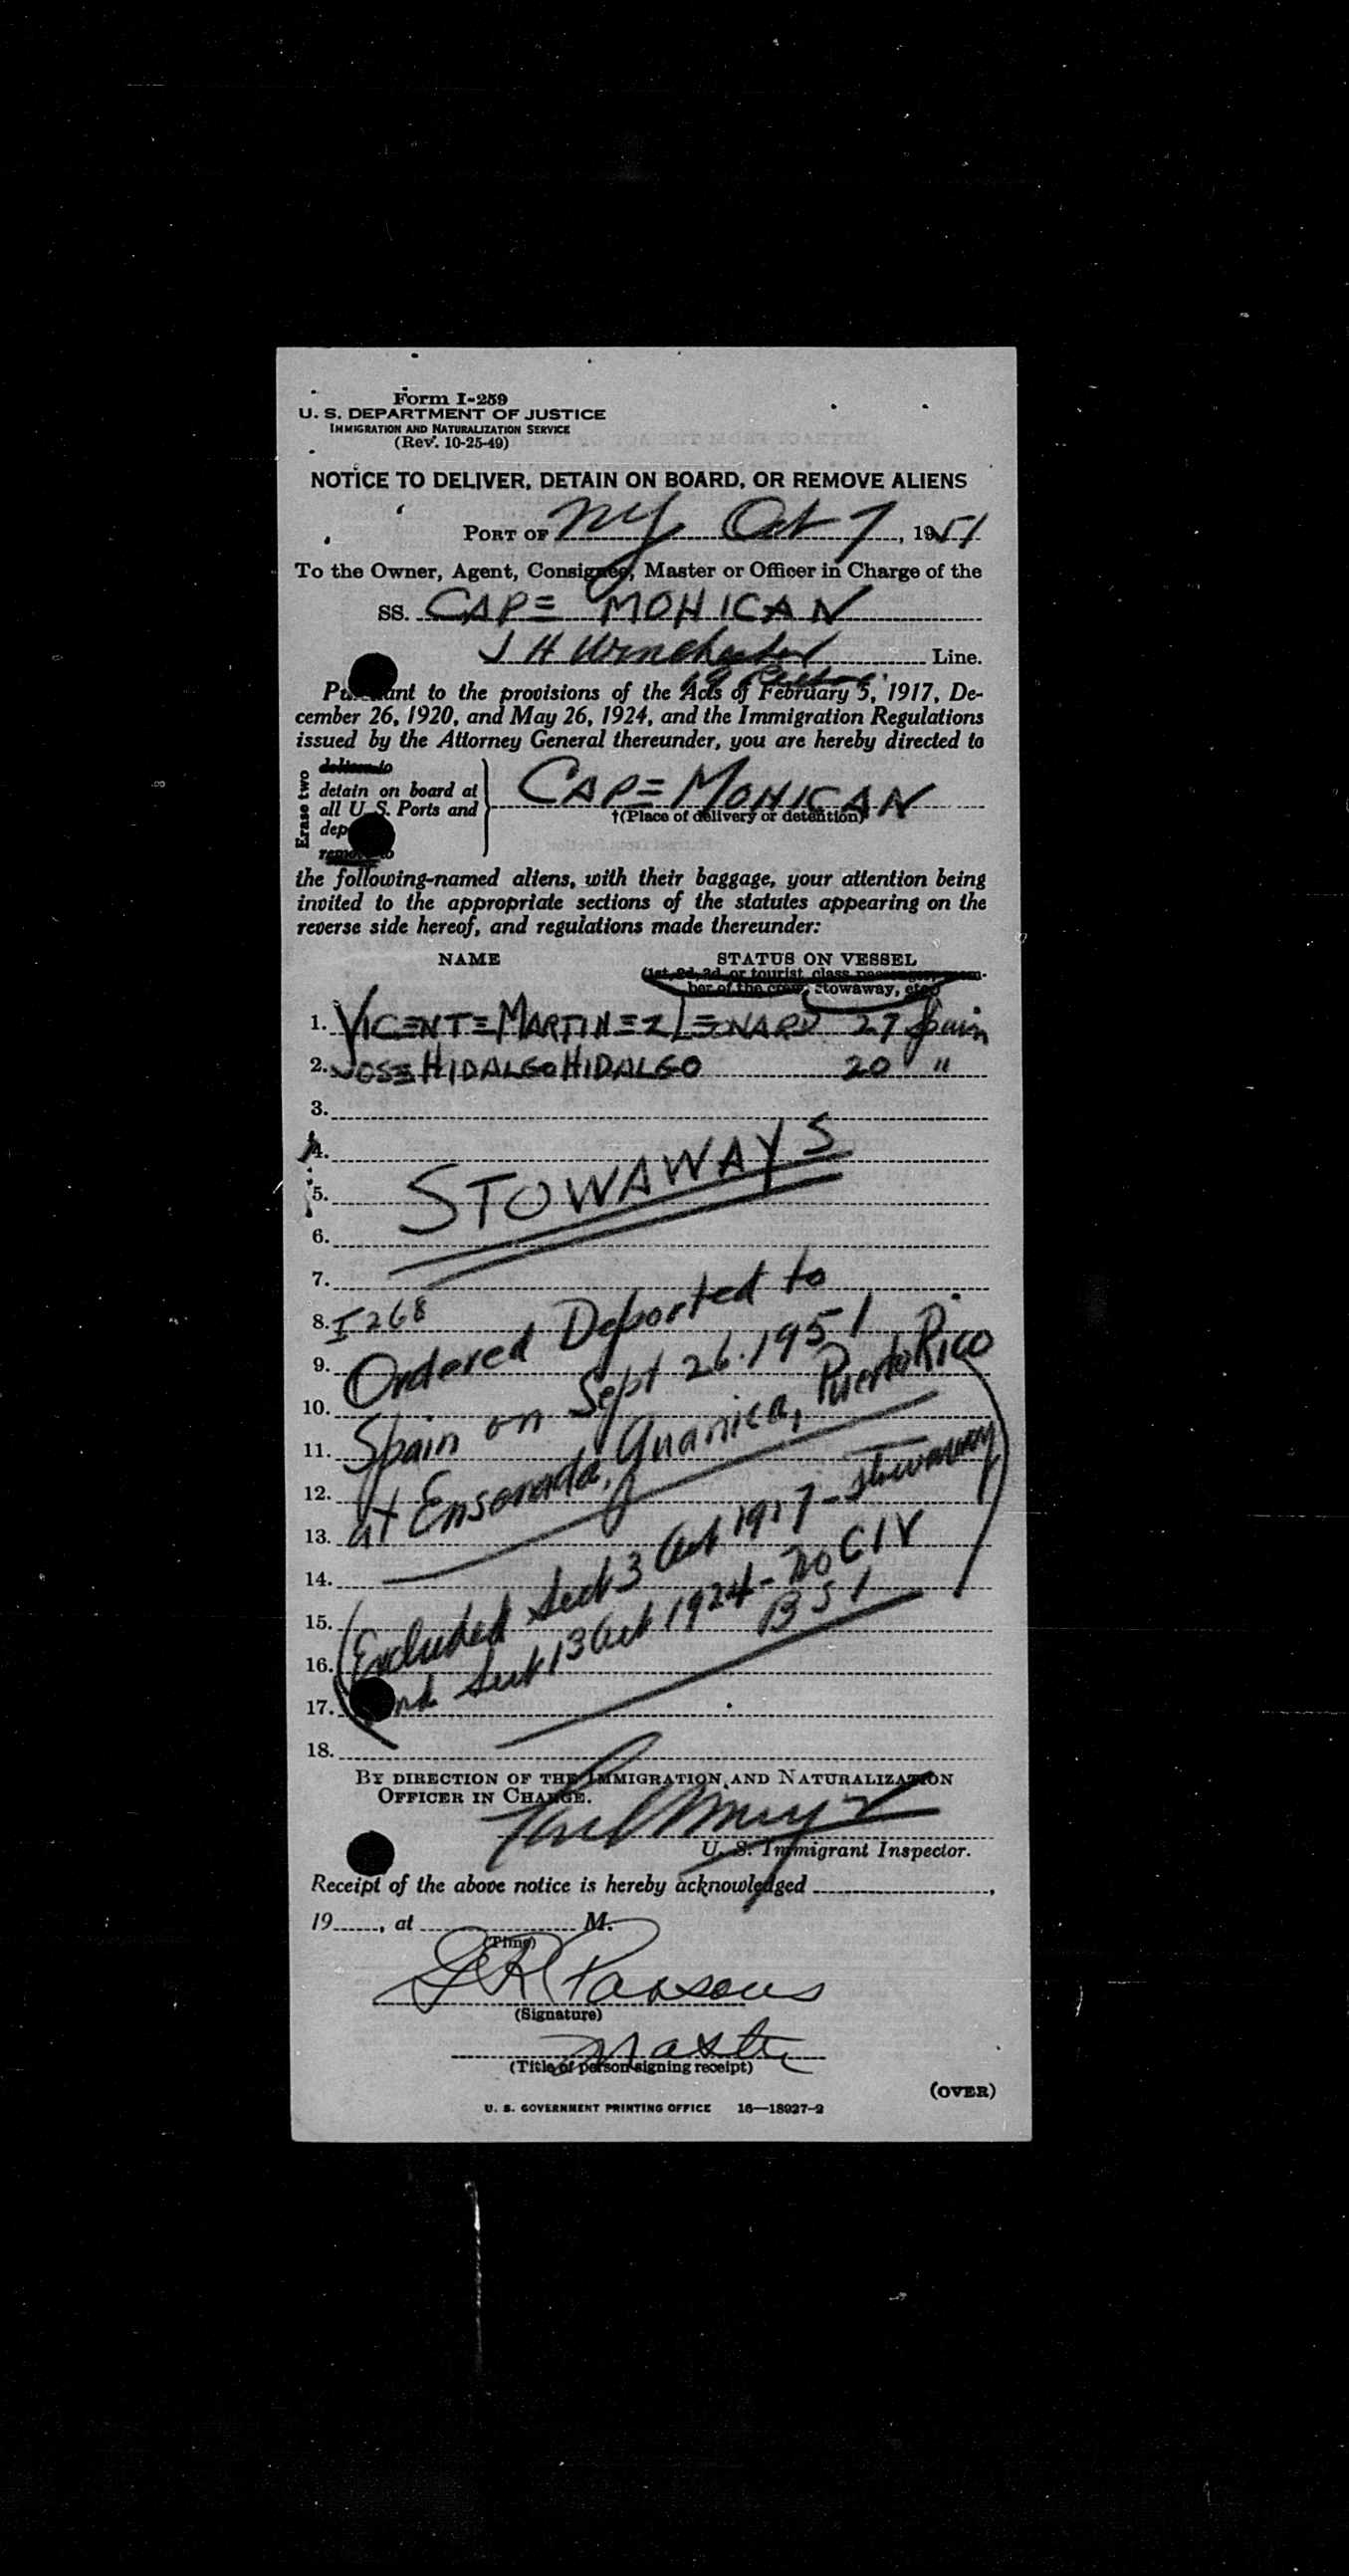 Form I-259
U. S. DEPARTMENT OF JUSTICE
IMMIGRATION AND NATURALIZATION SERVICE
(Rev. 10-25-49)
NOTICE TO DELIVER, DETAIN ON BOARD, OR REMOVE ALIENS
PORT OF NY Oct 7, 1951
To the Owner, Agent, Consignee, Master or Officer in Charge of the
SS. CAPE MOHICAN
J H Winchester Line.
19
Pu ant to the provisions of the Acts of February 5, 1917, De-
cember 26, 1920, and May 26, 1924, and the Immigration Regulations
issued by the Attorney General thereunder, you are hereby directed to
Erase two
deliver to
detain on board at
all U. S. Ports and
dep
remove to
CAPE MOHICAN
†(Place of delivery or detention)
the following-named aliens, with their baggage, your attention being
invited to the appropriate sections of the statutes appearing on the
reverse side hereof, and regulations made thereunder:
NAME STATUS ON VESSEL
(1st, 2d, 3d, or tourist class passenger, mem-
ber of the crew, stowaway, etc.)
1. VICENTE MARTINEZ LEONARD 27 Spain
2. JOSE HIDALGO HIDALGO 20 "
3.
4.
5. STOWAWAYS
6.
7.
8. I 268
9. Ordered Deported to
10. Spain on Sept 26. 1951
11. at Ensenada, Guanica, Puerto Rico
12.
13.
14.
15. (Excluded Sect 3 Act 1917 - stowaway
16. and Sect 13 Act 1924 - no CIV
17. BSI
18.
BY DIRECTION OF THE IMMIGRATION AND NATURALIZATION
OFFICER IN CHARGE.
U. S. Immigrant Inspector.
Receipt of the above notice is hereby acknowledged ,
19 , at M.
(Time)
G R Parsons
(Signature)
Master
(Title of person signing receipt)
(OVER)
U. S. GOVERNMENT PRINTING OFFICE 16—18927-2